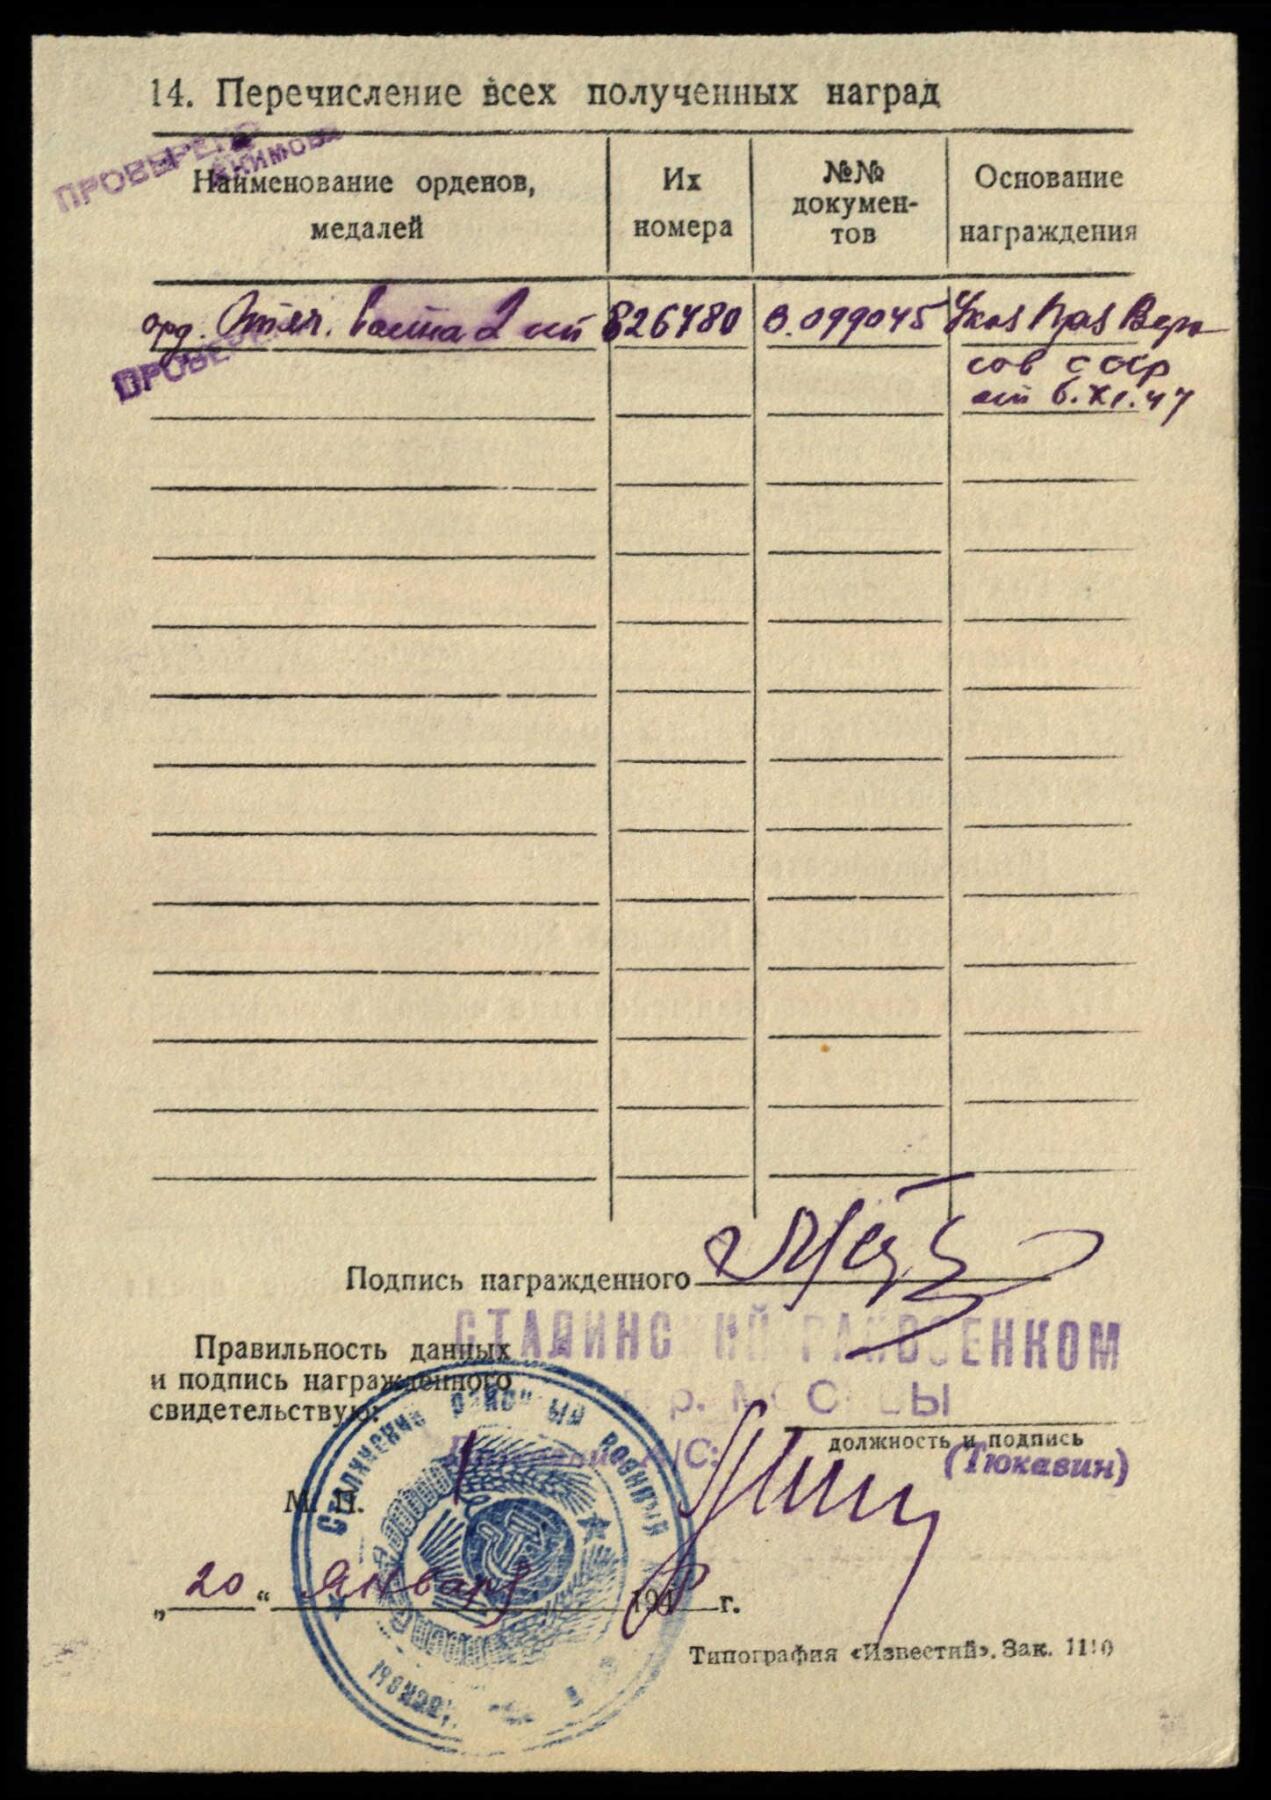 14. Перечисление всех полученных наград
ПРОВЕРЕНО
ЯКИМОВА
Наименование орденов,
медалей
Их
номера
№№
докумен-
тов
Основание
награждения
орд. Отеч. Война 2 ст
826480
В.099045
Указ През Верх
сов ссср
от 6.XI.47
ПРОВЕРЕНО
Подпись награжденного
СТАЛИНСКИЙ РАЙВОЕНКОМ
Правильность данных
и подпись награжденного
свидетельствую:
гр. МОСКВЫ
должность и подпись
(Тюкавин)
М. П.
СТАЛИНСКИЙ РАЙОННЫЙ ВОЕННЫЙ
„20“ января 1948 г.
Типография «Известий». Зак. 1110